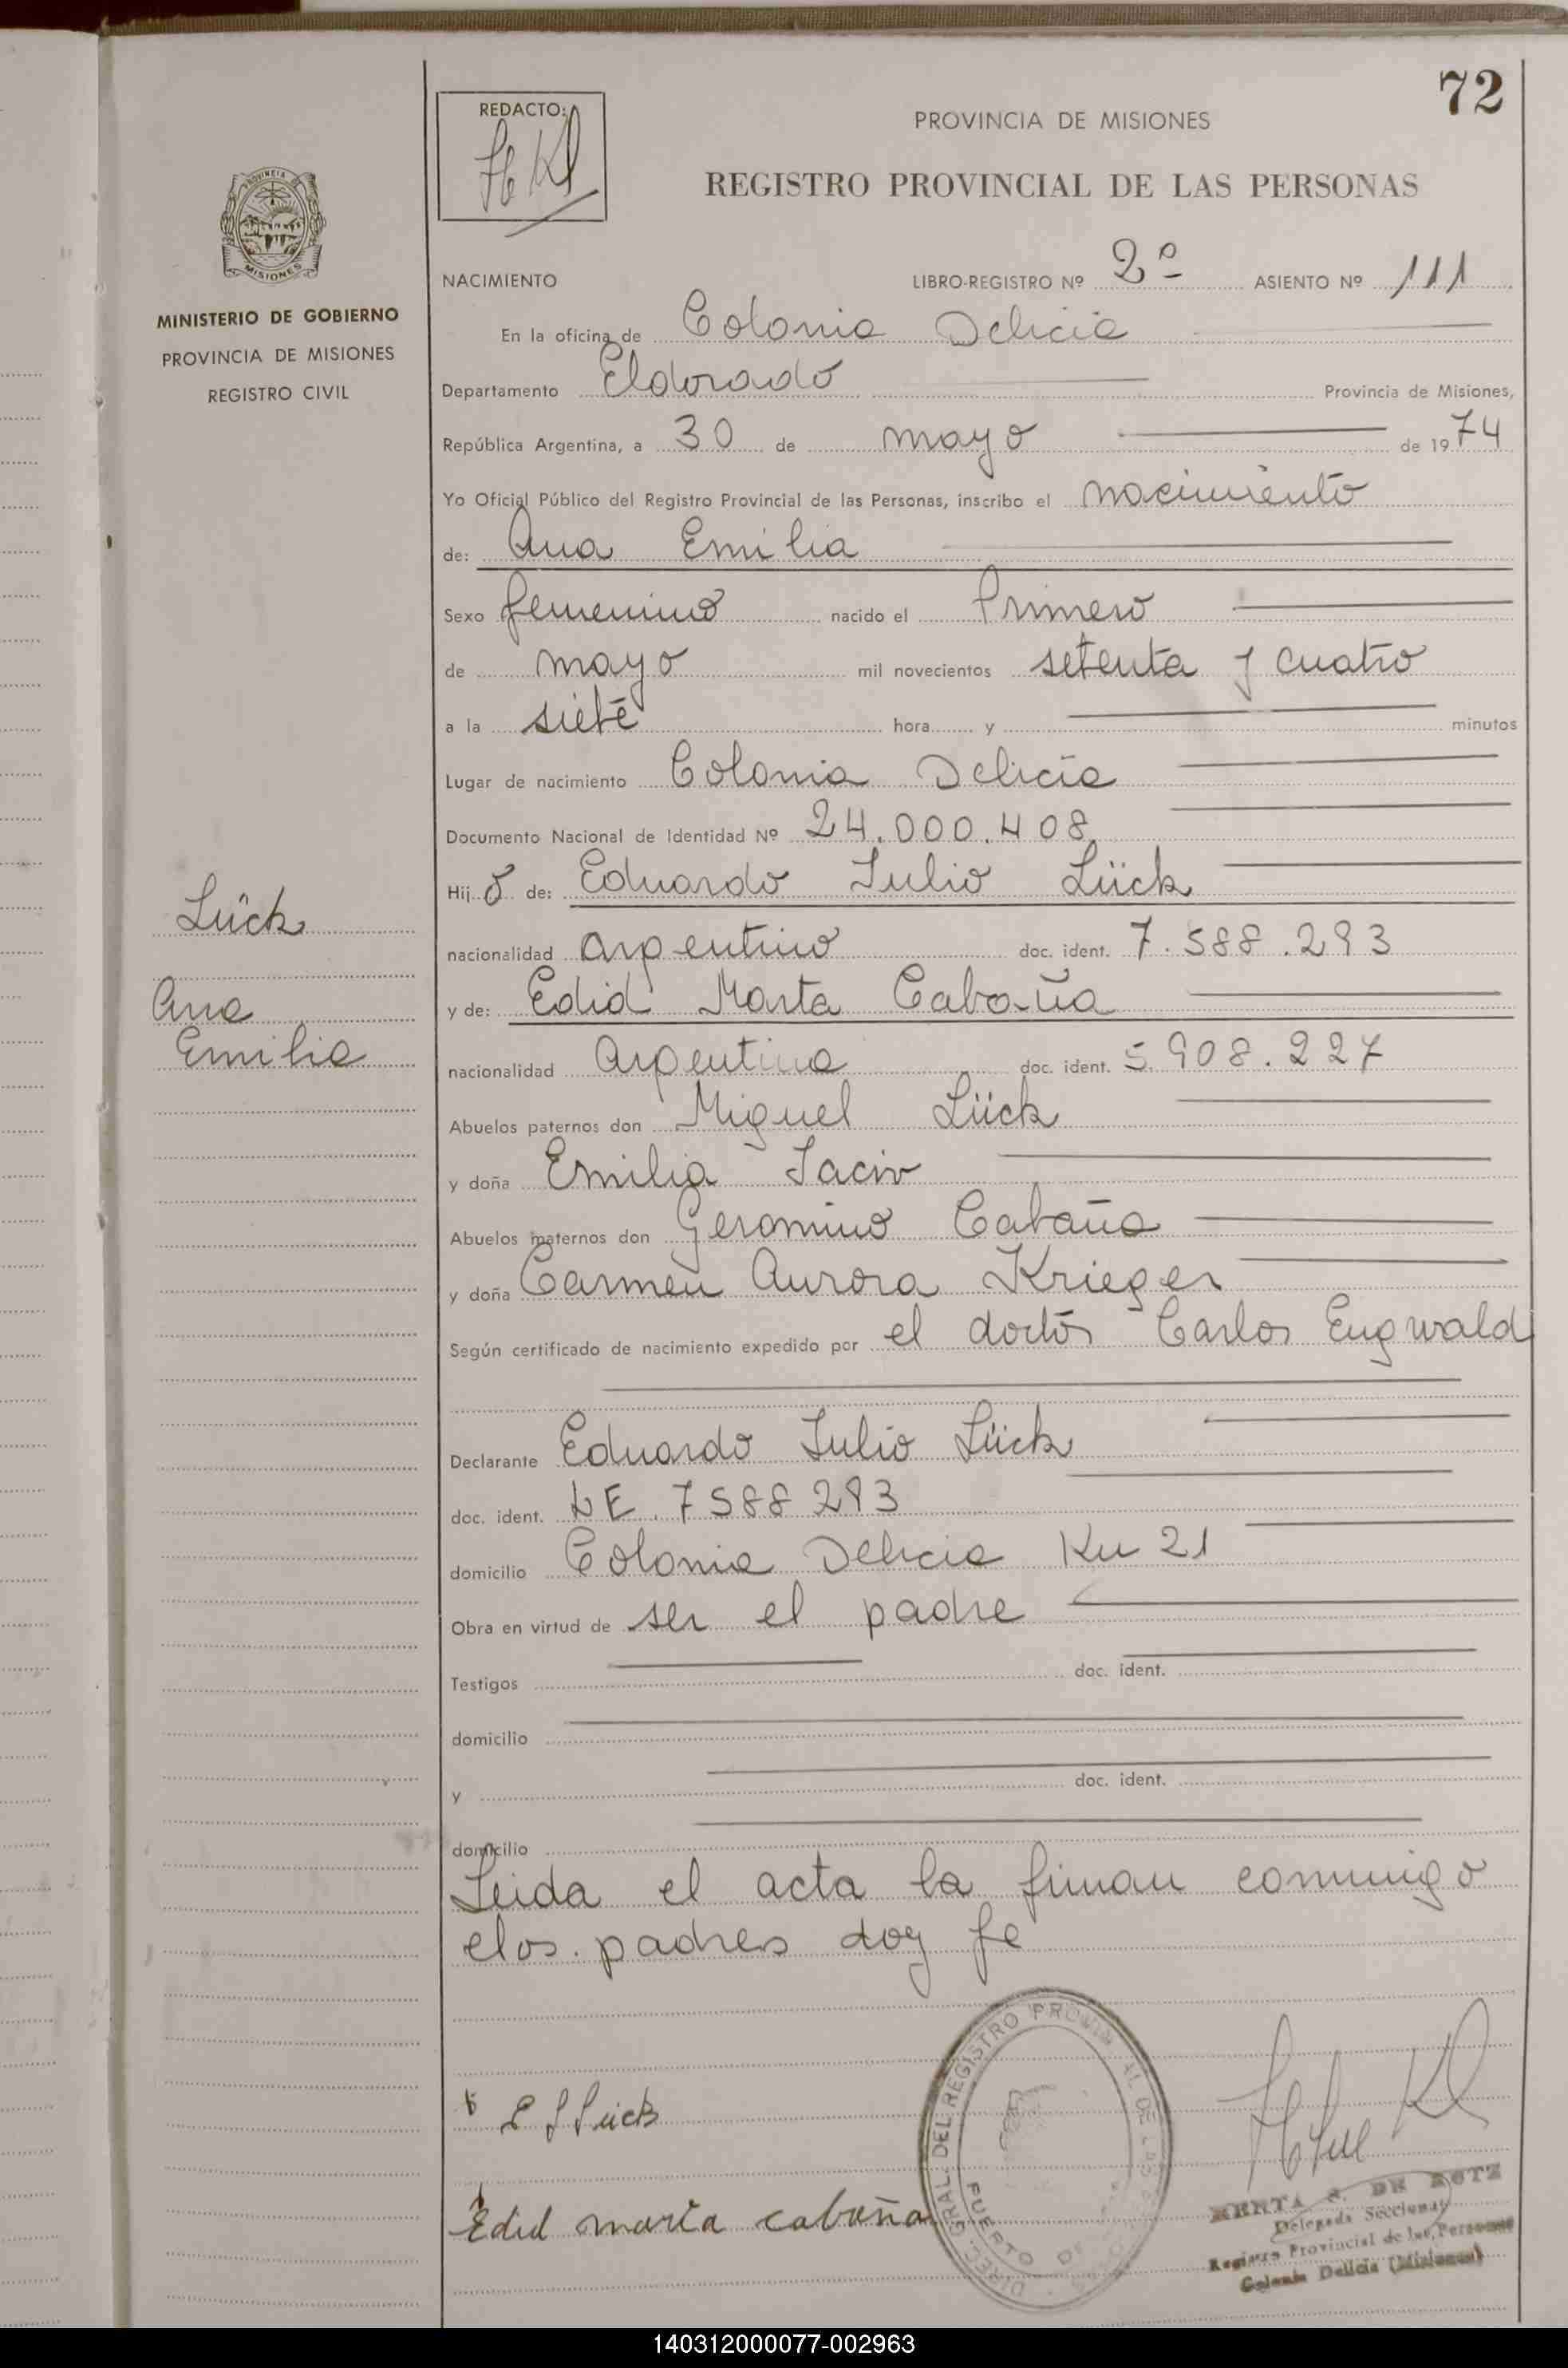 72
REDACTO:
PROVINCIA DE MISIONES
REGISTRO PROVINCIAL DE LAS PERSONAS
PROVINCIA DE
MISIONES
MINISTERIO DE GOBIERNO
PROVINCIA DE MISIONES
REGISTRO CIVIL
NACIMIENTO LIBRO-REGISTRO Nº 2º ASIENTO Nº 111
En la oficina de Colonia Delicia
Departamento Eldorado Provincia de Misiones,
República Argentina, a 30 de mayo de 1974
Yo Oficial Público del Registro Provincial de las Personas, inscribo el nacimiento
de: Ana Emilia
Sexo femenino nacido el Primero
de mayo mil novecientos setenta y cuatro
a la siete hora y minutos
Lugar de nacimiento Colonia Delicia
Documento Nacional de Identidad Nº 24.000.408
Hij o de: Eduardo Julio Lück
nacionalidad argentino doc. ident. 7.588.293
y de: Edid Marta Cabaña
nacionalidad argentina doc. ident. 5.908.227
Abuelos paternos don Miguel Lück
y doña Emilia
Abuelos maternos don Geronimo Cabaña
y doña Carmen Aurora Krieger
Según certificado de nacimiento expedido por el doctor Carlos Engwald
Declarante Eduardo Julio Lück
doc. ident. LE. 7588293
domicilio Colonia Delicia Km 21
Obra en virtud de ser el padre
Testigos doc. ident.
domicilio
y doc. ident.
domicilio
Leida el acta la firman conmigo
elos padres doy fe
Lück
Ana
Emilia
E J Lück
Edid marta cabaña
DIREC. GRAL. DEL REGISTRO PROVINCIAL DE LAS
PUERTO
DE ROTZ
Delegada Seccional
Registro Provincial de las Personas
Colonia Delicia (Misiones)
140312000077-002963